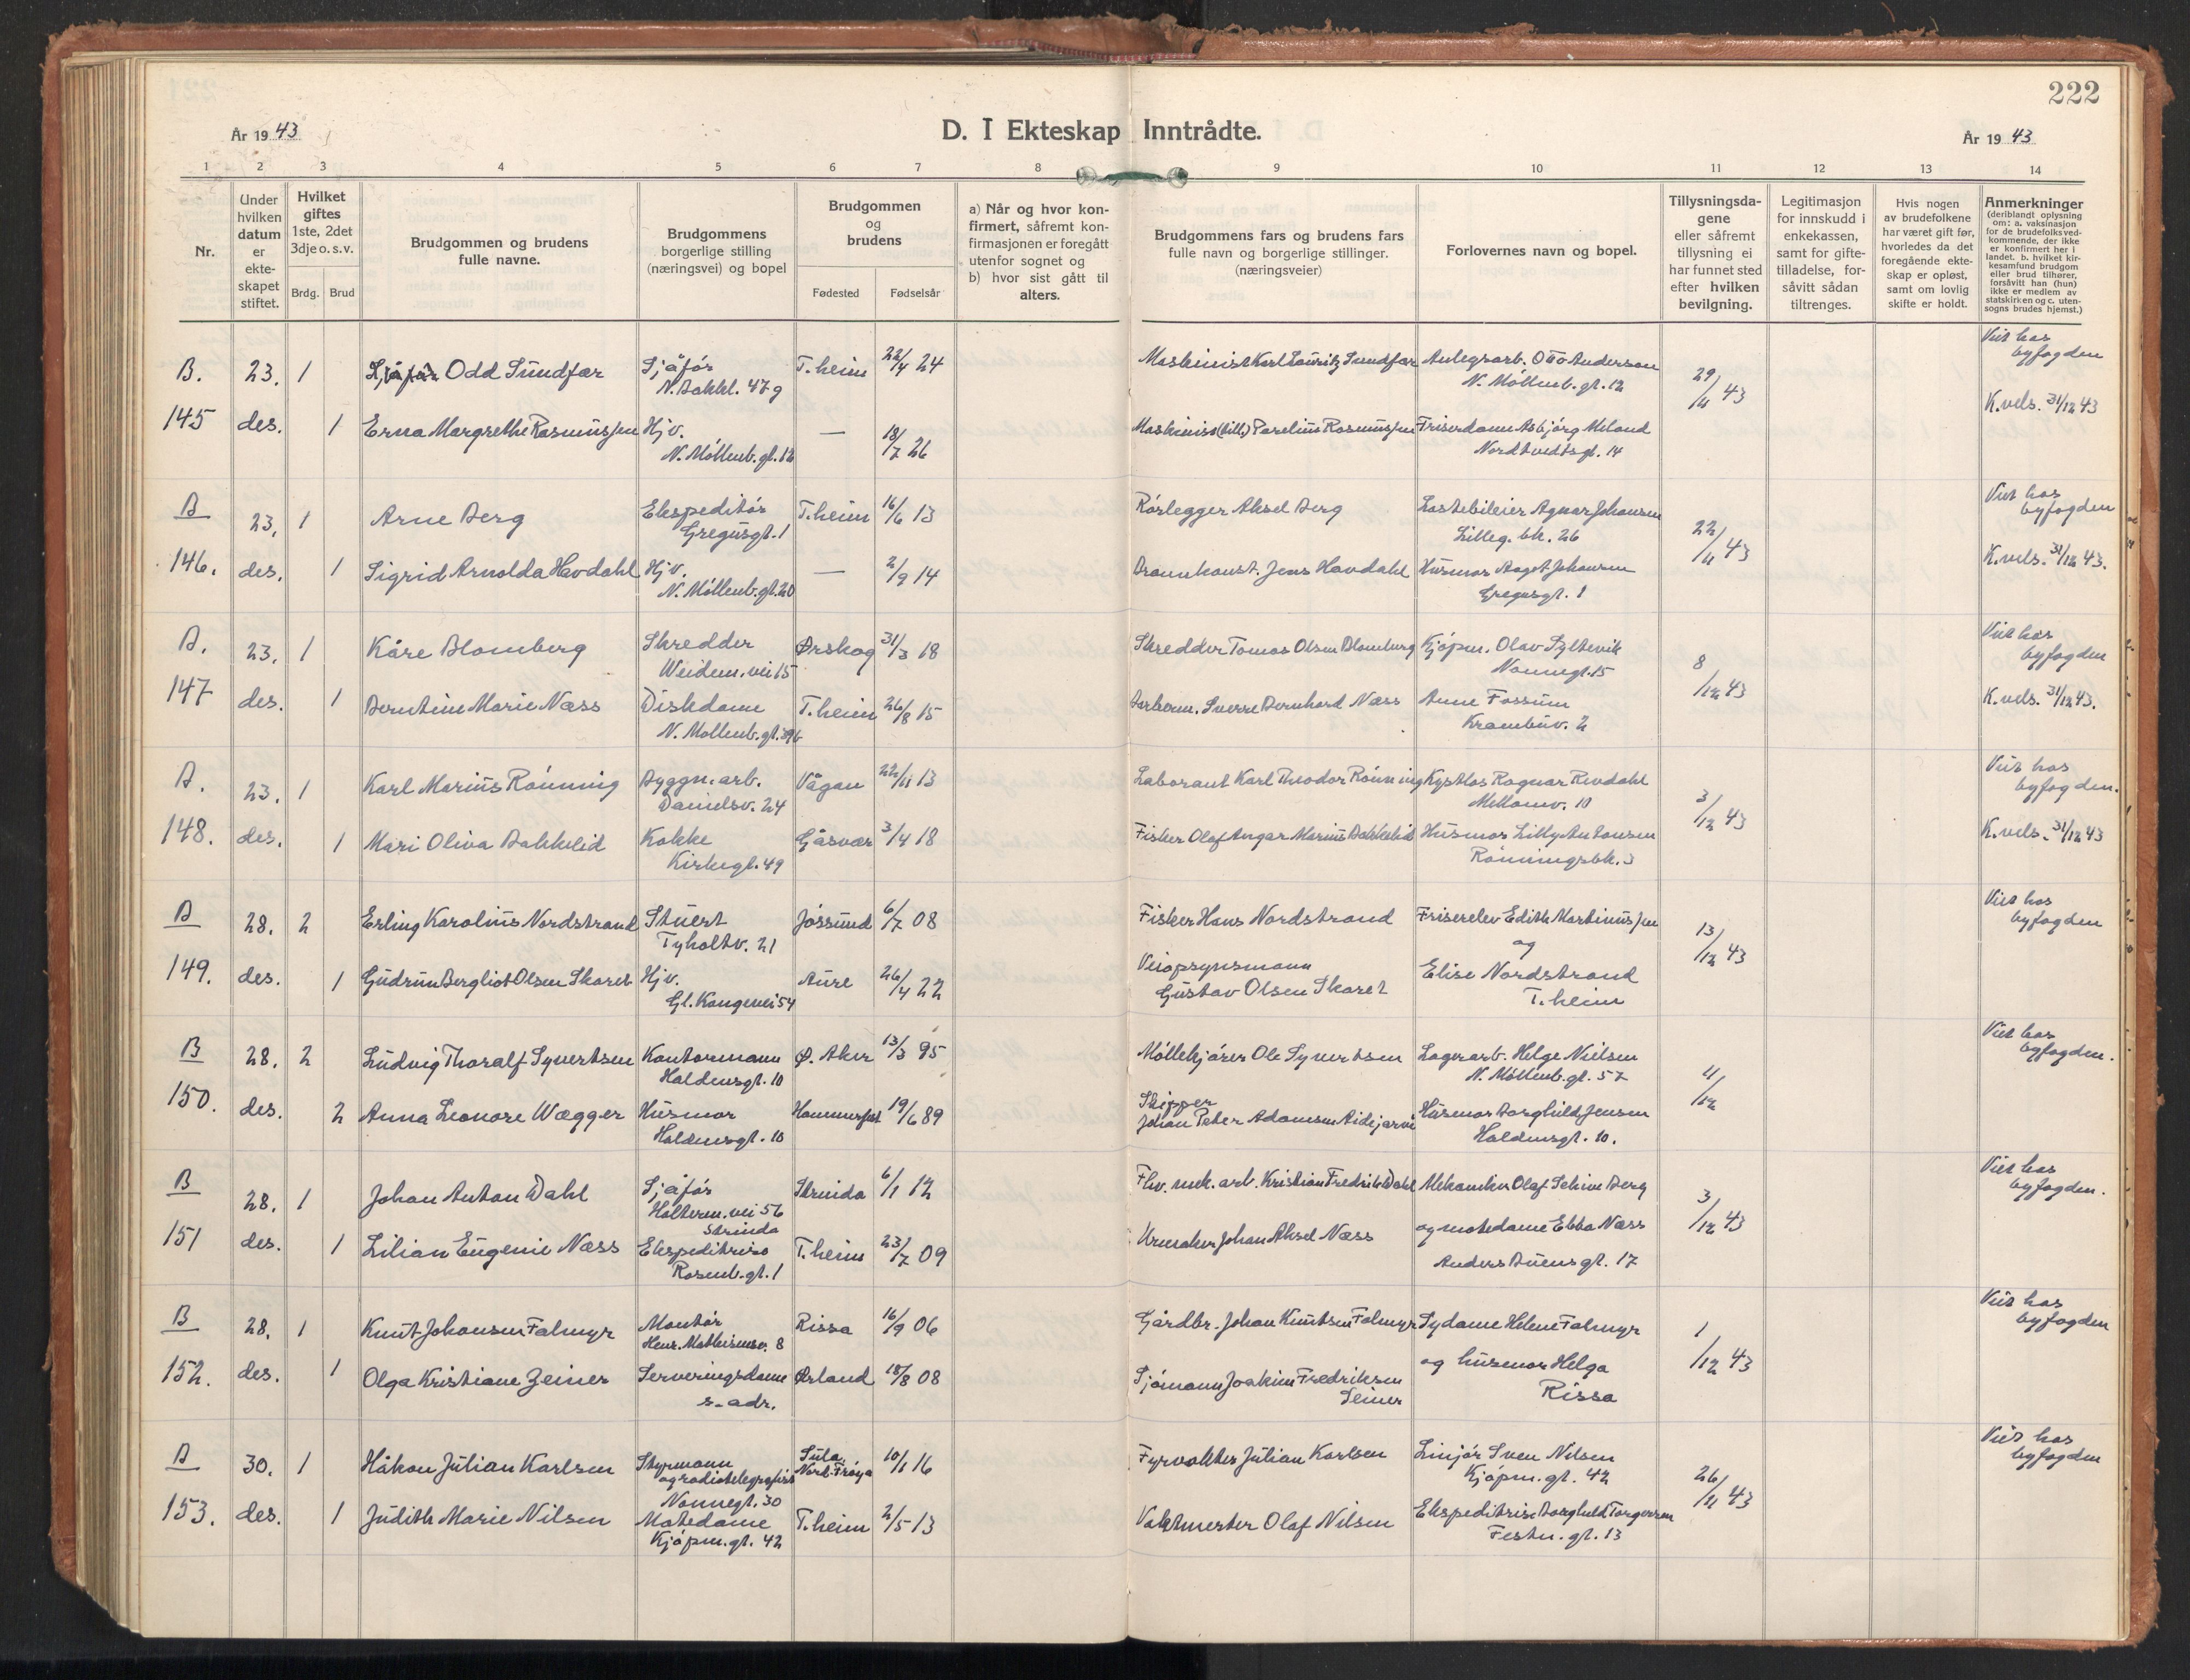 222
År 1943
D. I Ekteskap Inntrådte.
År 1943
1 2 3 4 5 6 7 8 9 10 11 12 13 14
Nr.
Under hvilken datum er ekteskapet stiftet.
Hvilket giftes 1ste, 2det 3dje o. s. v.
Brdg. Brud
Brudgommen og brudens fulle navne.
Brudgommens borgerlige stilling (næringsvei) og bopel
Brudgommen og brudens
Fødested
Fødselsår
a) Når og hvor konfirmert, såfremt konfirmasjonen er foregått utenfor sognet og
b) hvor sist gått til alters.
Brudgommens fars og brudens fars fulle navn og borgerlige stillinger. (næringsveier)
Forlovernes navn og bopel.
Tillysningsdagene eller såfremt tillysning ei har funnet sted efter hvilken bevilgning.
Legitimasjon for innskudd i enkekassen, samt for giftetilladelse, forsåvitt sådan tiltrenges.
Hvis nogen av brudefolkene har været gift før, hvorledes da det foregående ekteskap er opløst, samt om lovlig skifte er holdt.
Anmerkninger (deriblandt oplysning om: a. vaksinasjon for de brudefolks vedkommende, der ikke er konfirmert her i landet. b. hvilket kirkesamfund brudgom eller brud tilhører, forsåvitt han (hun) ikke er medlem av statskirken og c. utensogns brudes hjemst.)
B. 23. 1 Odd Sundfær Sjåfør T.heim 22/4 24 Maskinist Karl Lauritz Sundfær Anlegsarb. Otto Anderson Viet hos
N. Bakkl. 47 g N. Möllenb. gt. 12 29/11 43 byfogden
145 des. 1 Erna Margrethe Rasmussen Hjv. — 18/7 26 Maskinist Parelius Rasmussen Friserdame Asbjørg Meland K.vels. 31/12 43
N. Möllenb. gt. 12 Nordtvedtsgt. 14
B 23. 1 Arne Berg Ekspeditör T.heim 16/6 13 Rörlegger Aksel Berg Lastebileier Agnar Johansen Viet hos
Gregusgt. 1 Lilleg. bk. 26 22/11 43 byfogden
146. des. 1 Sigrid Arnolda Havdahl Hjv. — 2/9 14 Jens Havdahl Husmor Aagot Johansen K.vels. 31/12 43.
N. Möllenb. gt. 20 Gregusgt. 1
B. 23. 1 Kåre Blomberg Skredder Ørskog 31/3 18 Skredder Tomas Olsen Blomberg Kjöpm. Olav Syltevik Viet hos
Weidem. vei 15 Nonnegt. 15 8/12 43 byfogden
147 des. 1 Berntine Marie Næss Diskdame T.heim 26/8 15 Sverre Bernhard Næss Anne Fossum K.vels. 31/12 43.
N. Möllenb. gt. Krambuv. 2
B. 23. 1 Karl Marius Rönning Byggn. arb. Vågan 22/11 13 Laborant Karl Theodor Rönning Ragnar Revdahl Viet hos
Danielsv. 24 Mellomv. 10 3/12 43 byfogden.
148. des. 1 Mari Oliva Bakkelid Kokke Gåsvær 3/4 18 Fisker Olaf Angar Marius Bakkelid Husmor Lilly Antonsen K.vels. 31/12 43
Kirkegt. 49 Rönningsbk. 3
B 28. 2 Erling Karolius Nordstrand Stuert Jössund 6/7 08 Fisker Hans Nordstrand Friserelev Edith Martinussen Viet hos
Tyholtv. 21 og 13/12 43 byfogden
149. des. 1 Gudrun Bergliot Olsen Skaret Hjv. Aure 26/4 22 Veiopsynsmann Elise Nordstrand
Gl. Kongevei 54 Gustav Olsen Skaret T.heim
B 28. 2 Ludvig Thoralf Syvertsen Kontormann Ø. Aker 13/3 95 Möllekjörer Ole Syvertsen Lagerarb. Helge Nielsen Viet hos
Haldensgt. 10 N. Möllenb. gt. 57 4/12 byfogden.
150. des. 2 Anna Leonore Wægger Husmor Hammerfest 19/6 89 Skipper Husmor Borghild Jensen
Haldensgt. 10 Johan Peter Adamsen Aidejarvi Haldensgt. 10.
B 28. 1 Johan Anton Dahl Sjåfør Strinda 6/1 12 Fhv. mek. arb. Kristian Fredrik Dahl Mekaniker Olaf Schive Berg Viet hos
Halterm. vei 56 3/12 43 byfogden.
Strinda
151 des. 1 Lilian Eugenie Næss Ekspeditrise T.heim 23/7 09 Urmaker Johan Aksel Næss og motedame Ebba Næss
Rosenb. gt. 1 Anders Buens gt. 17
B 28. 1 Knut Johansen Falmyr Montör Rissa 16/9 06 Gårdbr. Johan Knutsen Falmyr Sydame Helene Falmyr Viet hos
Henr. Mathiesensv. 8 og husmor Helga 1/12 43 byfogden
152. des. 1 Olga Kristiane Zeiner Serveringsdame Ørland 18/8 08 Sjömann Joakim Fredriksen Rissa
s. adr. Seiner
B 30. 1 Håkon Julian Karlsen Styrmann Sula, 10/1 16 Fyrvokter Julian Karlsen Linjör Sven Nilsen Viet hos
og radiotelegrafist Nord-Fröya Kjöpm. gt. 42 26/11 43 byfogden
Nonnegt. 30
153. des. 1 Judith Marie Nilsen Motedame T.heim 2/5 13 Vaktmester Olaf Nilsen Ekspeditrise Borghild Torgersen
Kjöpm. gt. 42 Festn. gt. 13